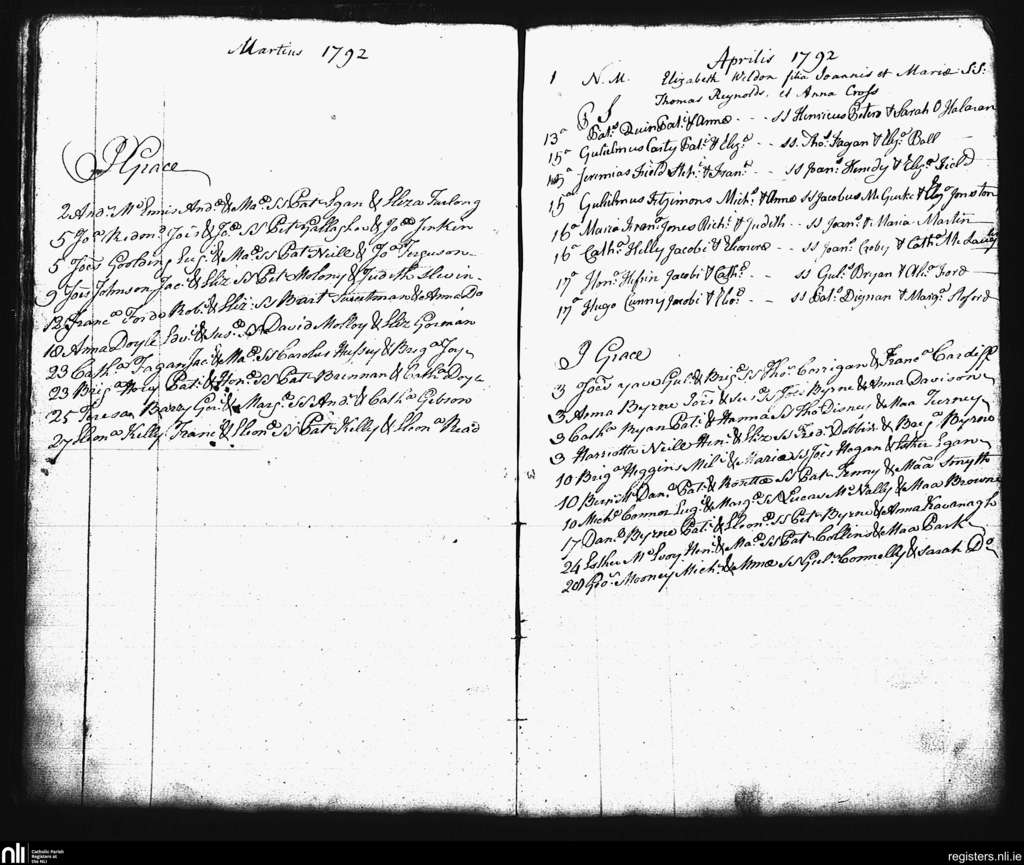 Martius 1792
J Grace
2 And: Mc Ennis And: & Ma: SS Pat Egan & Eliza Furlong
5 Joa Redmon Jois & Joa: SS Pet Gallagher & Joa Jenkin
5 Joes Gooldin Eug: & Ma: SS Pat Neill & Jo: Ferguson
9 Jois Johnson Jac: & Eliz SS Pet Molony & Jud Mc Slevin
13 Franca Forde Rob: & Eliz: SS Bart Sweetman & Anna Do
18 Anna Doyle Edwd: & Sus: SS David Molloy & Eliz Gorman
23 Catha Fagan Jac: & Ma: SS Carolus Hussey & Briga Joy
23 Briga Pat: & Hon: SS Pat Brennan & Catha Doyle
25 Teresa Barry Ger: & Marg: SS And: & Catha Gibson
27 Eleona Kelly Franc & Eleon: SS Pat Kelly & Eleona Read
Aprilis 1792
1 N. M. Elizabeth Weldon filia Joannis et Mariæ SS:
Thomas Reynolds, et Anna Cross
13a Pat: Quin Pat: & Annæ - - - SS Henricus & Sarah O Halaran
15a Gulielmus Carty Pat: & Eliz: - - SS. Tho: Fagan & Elz: Ball
15a Jeremias Field Mich: & Fran: - - SS Joan: & Elz: Field
15a Gulielmus Fitzimons Mich: & Annæ SS Jacobus McGurke & Elz Jonston
16a Maria Jones Rich: & Judith - - SS Joan: & Maria Martin
16a Cath: Kelly Jacobi & Elenoræ - - SS Joan: & Cath: Mc
17a Jacobi & Cath: SS Gul: Bryan & Ford
17a Hugo Cunny Jacobi & - - SS Pat: Dignan & Marg:
J Grace
3 Joes Gul: & Brig: SS Tho: Corrigan & Franc: Cardiff
3 Anna Byrne Jois & Sus: SS Jois Byrne & Anna Davison
9 Catha Ryan Pat: & Hanna SS Tho Disney & Maa Tierney
9 Harriotta Neill Hen: & Eliz SS Fred: & Brig: Byrne
10 Briga Higgins Mil: & Mariæ SS Jois Hogan & Esther Egan
10 Dan: Pat: & Rosettæ SS Pat Fenny & Maa Smyth
10 Mich: Connor Eug: & Marg: SS Lucas McNally & Maa Browne
17 Dan: Byrne Pat: & Eleon: SS Pet Byrne & Anna Kavanagh
24 Esther Mc Evoy Hen: & Ma: SS Pat Collins & Maa Park
28 Geo: Mooney Mich: & Annæ SS Gul: Connelly & Sarah Do
3
nli
Catholic Parish
Registers at
the NLI
registers.nli.ie